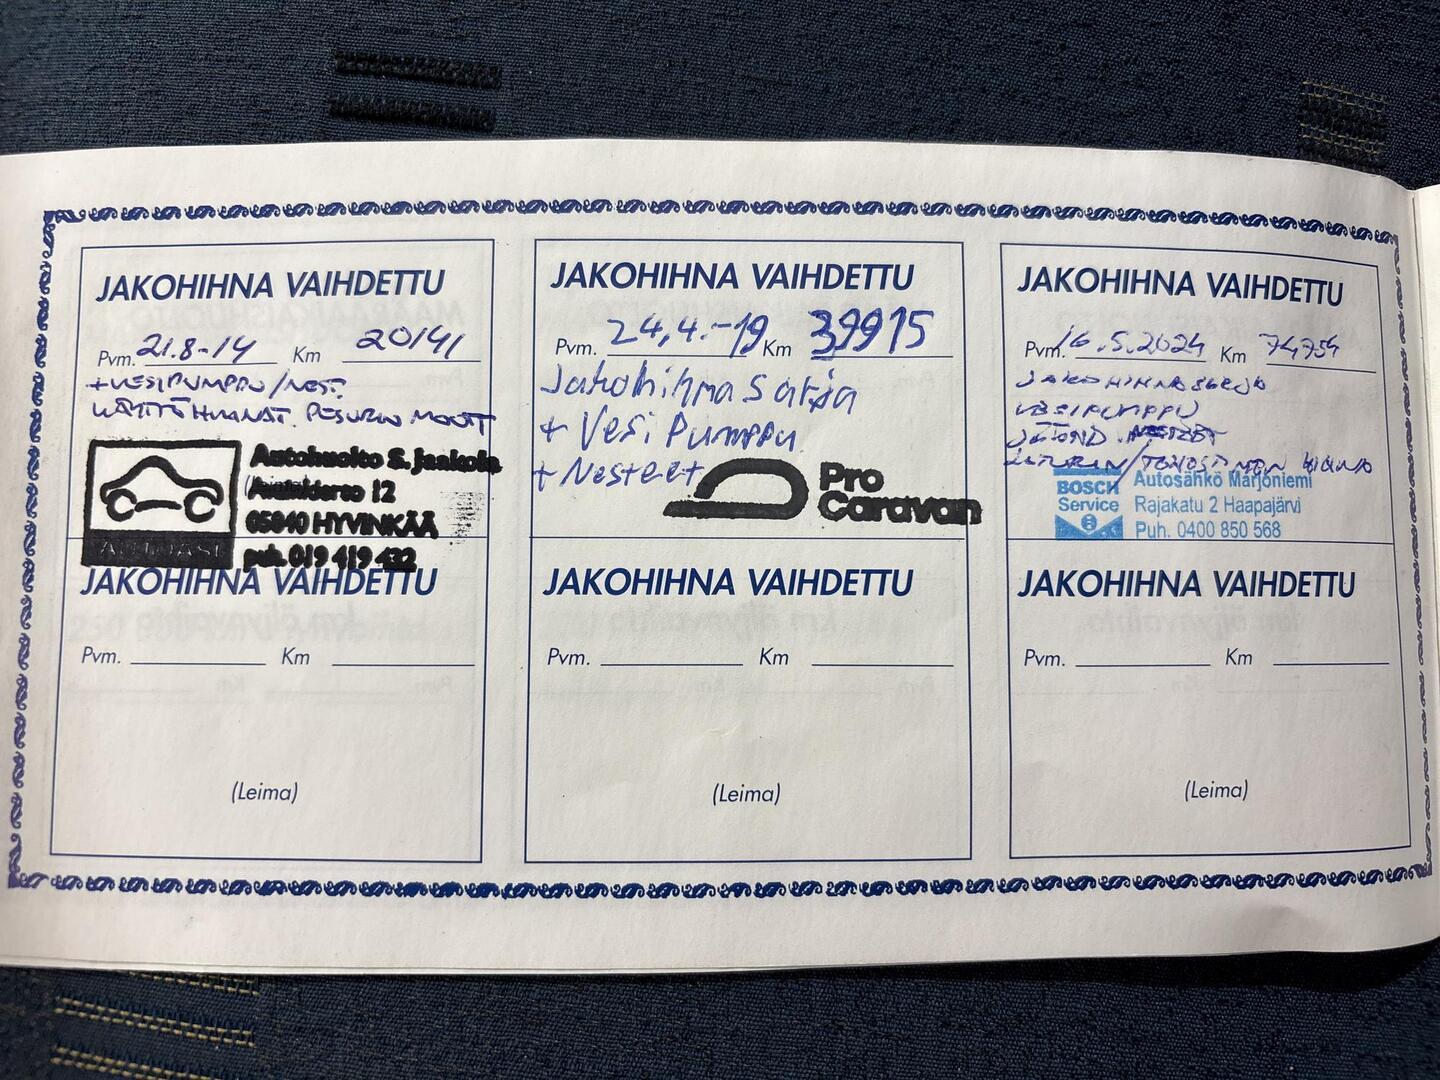 JAKOHIHNA VAIHDETTU
Pvm. 21.8-14 Km 20141
+VESIPUMPPU/NEST.
KÄYTTÖHIHNAT. PESURIN MOOTT
Autohuolto S. Jaakola
12
05840 HYVINKÄÄ
puh. 019 419 432
AUTOASI
JAKOHIHNA VAIHDETTU
Pvm. 24.4.-19 Km 39915
Jakohihna sarja
+ Vesi Pumppu
+ Nesteet
Pro
Caravan
JAKOHIHNA VAIHDETTU
Pvm. 16.5.2024 Km 74754
JAKOHIHNASARJA
VESIPUMPPU
JÄÄHD. NESTEET
LATURIN/TEHOSTIMEN HIHNA
BOSCH
Service
Autosähkö Marjoniemi
Rajakatu 2 Haapajärvi
Puh. 0400 850 568
JAKOHIHNA VAIHDETTU
Pvm. Km
(Leima)
JAKOHIHNA VAIHDETTU
Pvm. Km
(Leima)
JAKOHIHNA VAIHDETTU
Pvm. Km
(Leima)